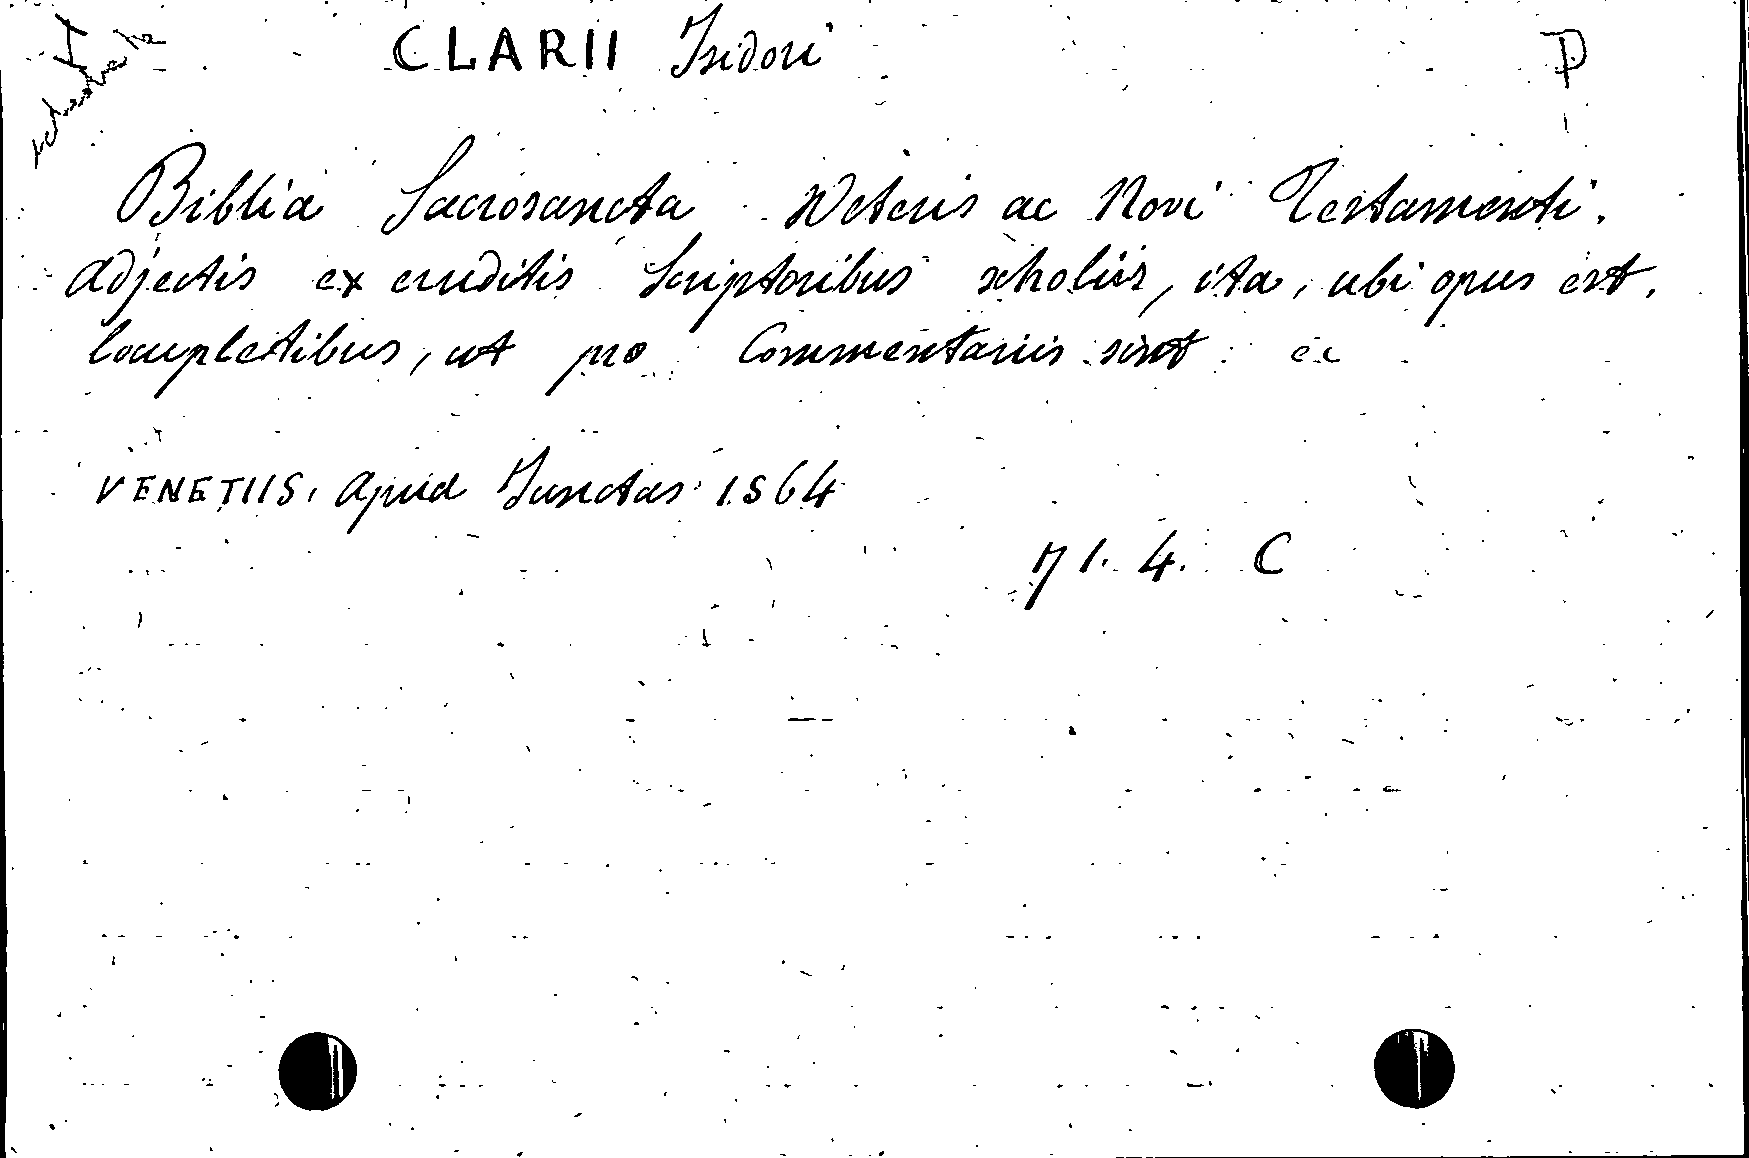 schedata
CLARII Isidori
P
Biblia Sacrosancta Veteris ac Novi Testamenti.
adjectis ex eruditis scriptoribus scholiis, ita, ubi opus est,
locupletibus, ut pro Commentariis sint: ec
VENETIIS, apud Junctas 1564
71. 4. C